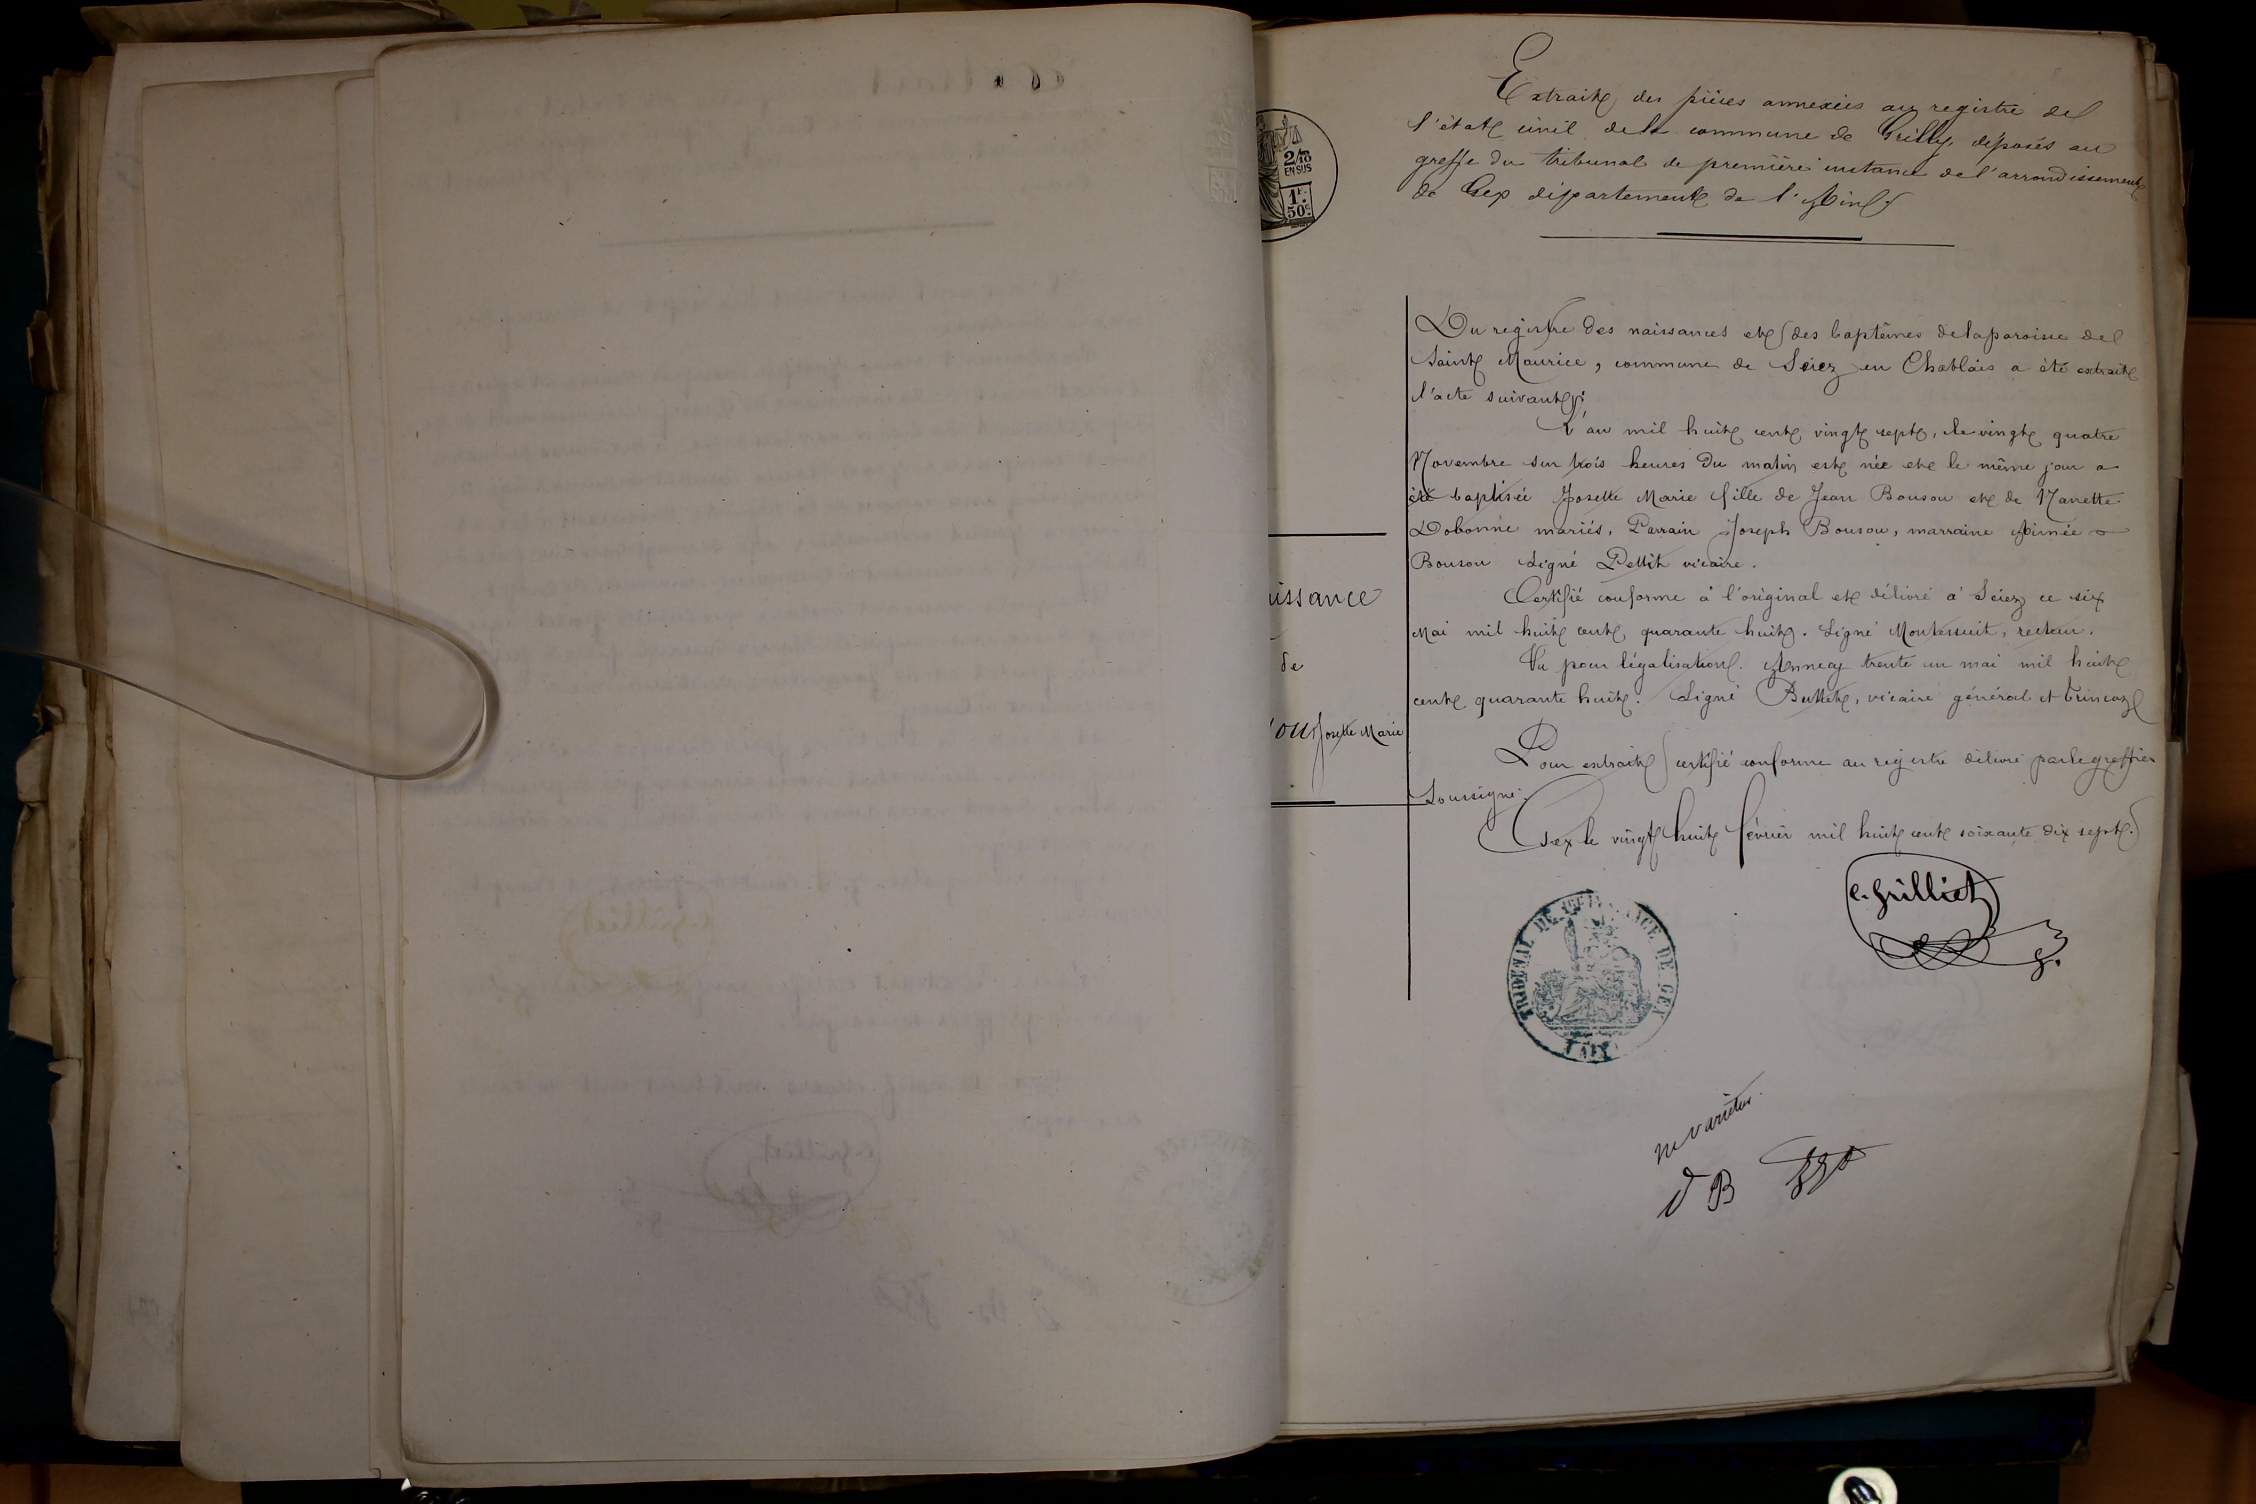 Extrait des pièces annexées au registre de
l'état civil de la commune de Grilly, déposés au
greffe du tribunal de première instance de l'arrondissement
de Gex département de l'Ain
2/10
EN SUS
1F.
50c.
Du registre des naissances et des baptêmes de la paroisse de
Saint Maurice, commune de Sciez en Chablais a été extrait
l'acte suivant:
L'an mil huit cent vingt sept, le vingt quatre
Novembre sur trois heures du matin est née et le même jour a
été baptisée Josette Marie fille de Jean Bouson et de Nanette
Dobonne mariés, Parrain Joseph Bouson, marraine Aimée
Bouson Signé Pettit vicaire.
Certifié conforme à l'original et délivré à Sciez ce six
Mai mil huit cent quarante huit. Signé Montessuit, recteur.
Vu pour légalisation. Annecy trente un mai mil huit
cent quarante huit. Signé Buttet, vicaire général et Trincaz
Pour extrait certifié conforme au registre délivré par le greffier
Soussigné.
Gex le vingt huit février mil huit cent soixante dix sept.
issance
de
Josette Marie
e. Grilliet
g.
TRIBUNAL DE 1ère INSTANCE DE GEX
(AIN)
ne varietur
d B